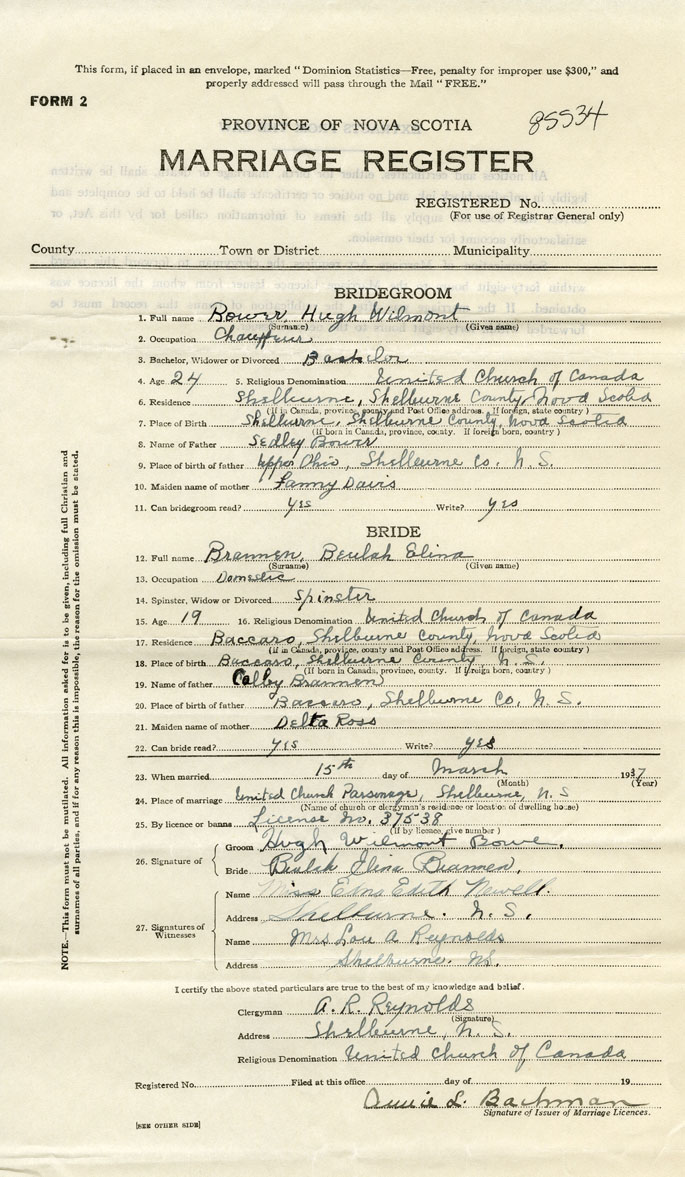 This form, if placed in an envelope, marked "Dominion Statistics—Free, penalty for improper use $300," and
properly addressed will pass through the Mail "FREE."
FORM 2
85534
PROVINCE OF NOVA SCOTIA
MARRIAGE REGISTER
REGISTERED No.
(For use of Registrar General only)
County Town or District Municipality
BRIDEGROOM
1. Full name Bower, Hugh Wilmont
(Surname) (Given name)
2. Occupation Chauffeur
3. Bachelor, Widower or Divorced Bachelor
4. Age 24 5. Religious Denomination United Church of Canada
6. Residence Shelburne, Shelburne County, Nova Scotia
(If in Canada, province, county and Post Office address. If foreign, state country)
7. Place of Birth Shelburne, Shelburne County, Nova Scotia
(If born in Canada, province, county. If foreign born, country)
8. Name of Father Sedley Bower
9. Place of birth of father Upper Ohio, Shelburne Co. N. S.
10. Maiden name of mother Fanny Davis
11. Can bridegroom read? yes Write? yes
BRIDE
12. Full name Brannen, Beulah Elina
(Surname) (Given name)
13. Occupation Domestic
14. Spinster, Widow or Divorced Spinster
15. Age 19 16. Religious Denomination United Church of Canada
17. Residence Baccaro, Shelburne County, Nova Scotia
(If in Canada, province, county and Post Office address. If foreign, state country)
18. Place of birth Baccaro, Shelburne County, N. S.
(If born in Canada, province, county. If foreign born, country)
19. Name of father Colby Brannen
20. Place of birth of father Baccaro, Shelburne Co. N. S.
21. Maiden name of mother Delta Ross
22. Can bride read? yes Write? yes
23. When married 15th day of March 1937
(Month) (Year)
24. Place of marriage United Church Parsonage, Shelburne, N. S
(Name of church or clergyman's residence or location of dwelling house)
25. By licence or banns License No. 37538
(If by licence, give number)
26. Signature of Groom Hugh Wilmont Bower.
Bride Beulah Elina Brannen.
27. Signatures of Witnesses
Name Miss Edna Edith Newell.
Address Shelburne. N. S.
Name Mrs Lou A Reynolds
Address Shelburne. NS.
I certify the above stated particulars are true to the best of my knowledge and belief.
Clergyman A. R. Reynolds
(Signature)
Address Shelburne, N. S.
Religious Denomination United Church of Canada
Registered No. Filed at this office day of 19
Annie L. Bachman
Signature of Issuer of Marriage Licences.
[SEE OTHER SIDE]
NOTE.—This form must not be mutilated. All information asked for is to be given, including full Christian and
surnames of all parties, and if for any reason this is impossible, the reason for the omission must be stated.